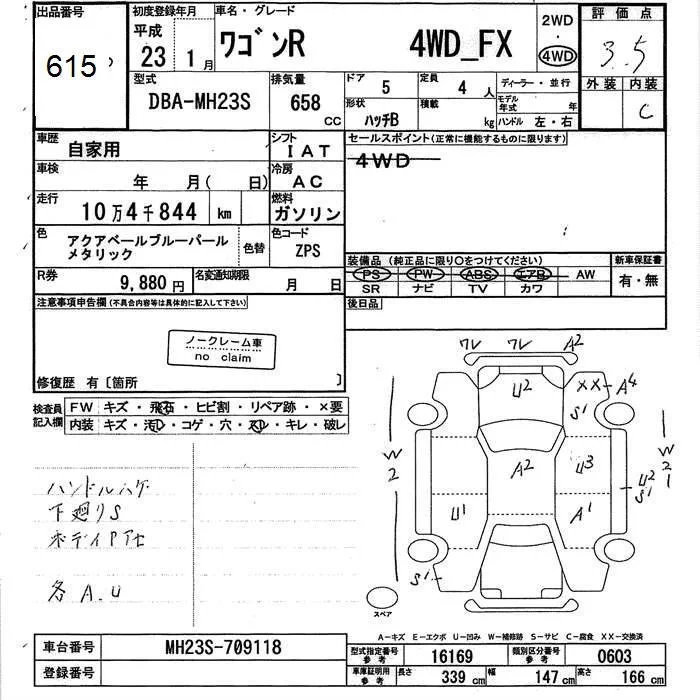 出品番号
615
初度登録年月
平成
23 1月
車名・グレード
ワゴンR 4WD_FX
2WD
・
4WD
評価点
3.5
外装 内装
C
型式
DBA-MH23S
排気量
658 CC
ドア
5
定員
4 人
形状
ハッチB
積載
kg
ディーラー・並行
モデル年式 年
ハンドル 左・右
車歴
自家用
シフト
IAT
車検
年 月( 日)
冷房
AC
走行
10万4千844 km
燃料
ガソリン
色
アクアベールブルーパール
メタリック
色替
色コード
ZPS
R券
9,880円
名変通知期限
月 日
セールスポイント(正常に機能するものに限ります)
4WD
装備品(純正品に限り○をつけてください)
PS PW ABS エアB AW
SR ナビ TV カワ
新車保証書
有・無
後日品
注意事項申告欄(不具合内容等は具体的に記入して下さい)
ノークレーム車
no claim
修復歴 有〔箇所 〕
検査員
記入欄
FW キズ・飛石・ヒビ割・リペア跡・×要
内装 キズ・汚レ・コゲ・穴・スレ・キレ・破レ
ハンドルスゲ
下廻りS
各A.U
ワレ ワレ A2
U2
XX A4
S1
W2
A2
U3
U1
A1
U2
S1
W
2
1
S1
スペア
A-キズ E-エクボ U-凹み W-補修跡 S-サビ C-腐食 XX-交換済
車台番号
MH23S-709118
登録番号
型式指定番号
参考
16169
類別区分番号
参考
0603
車庫証明用
参考
長さ
339 cm
幅
147 cm
高さ
166 cm